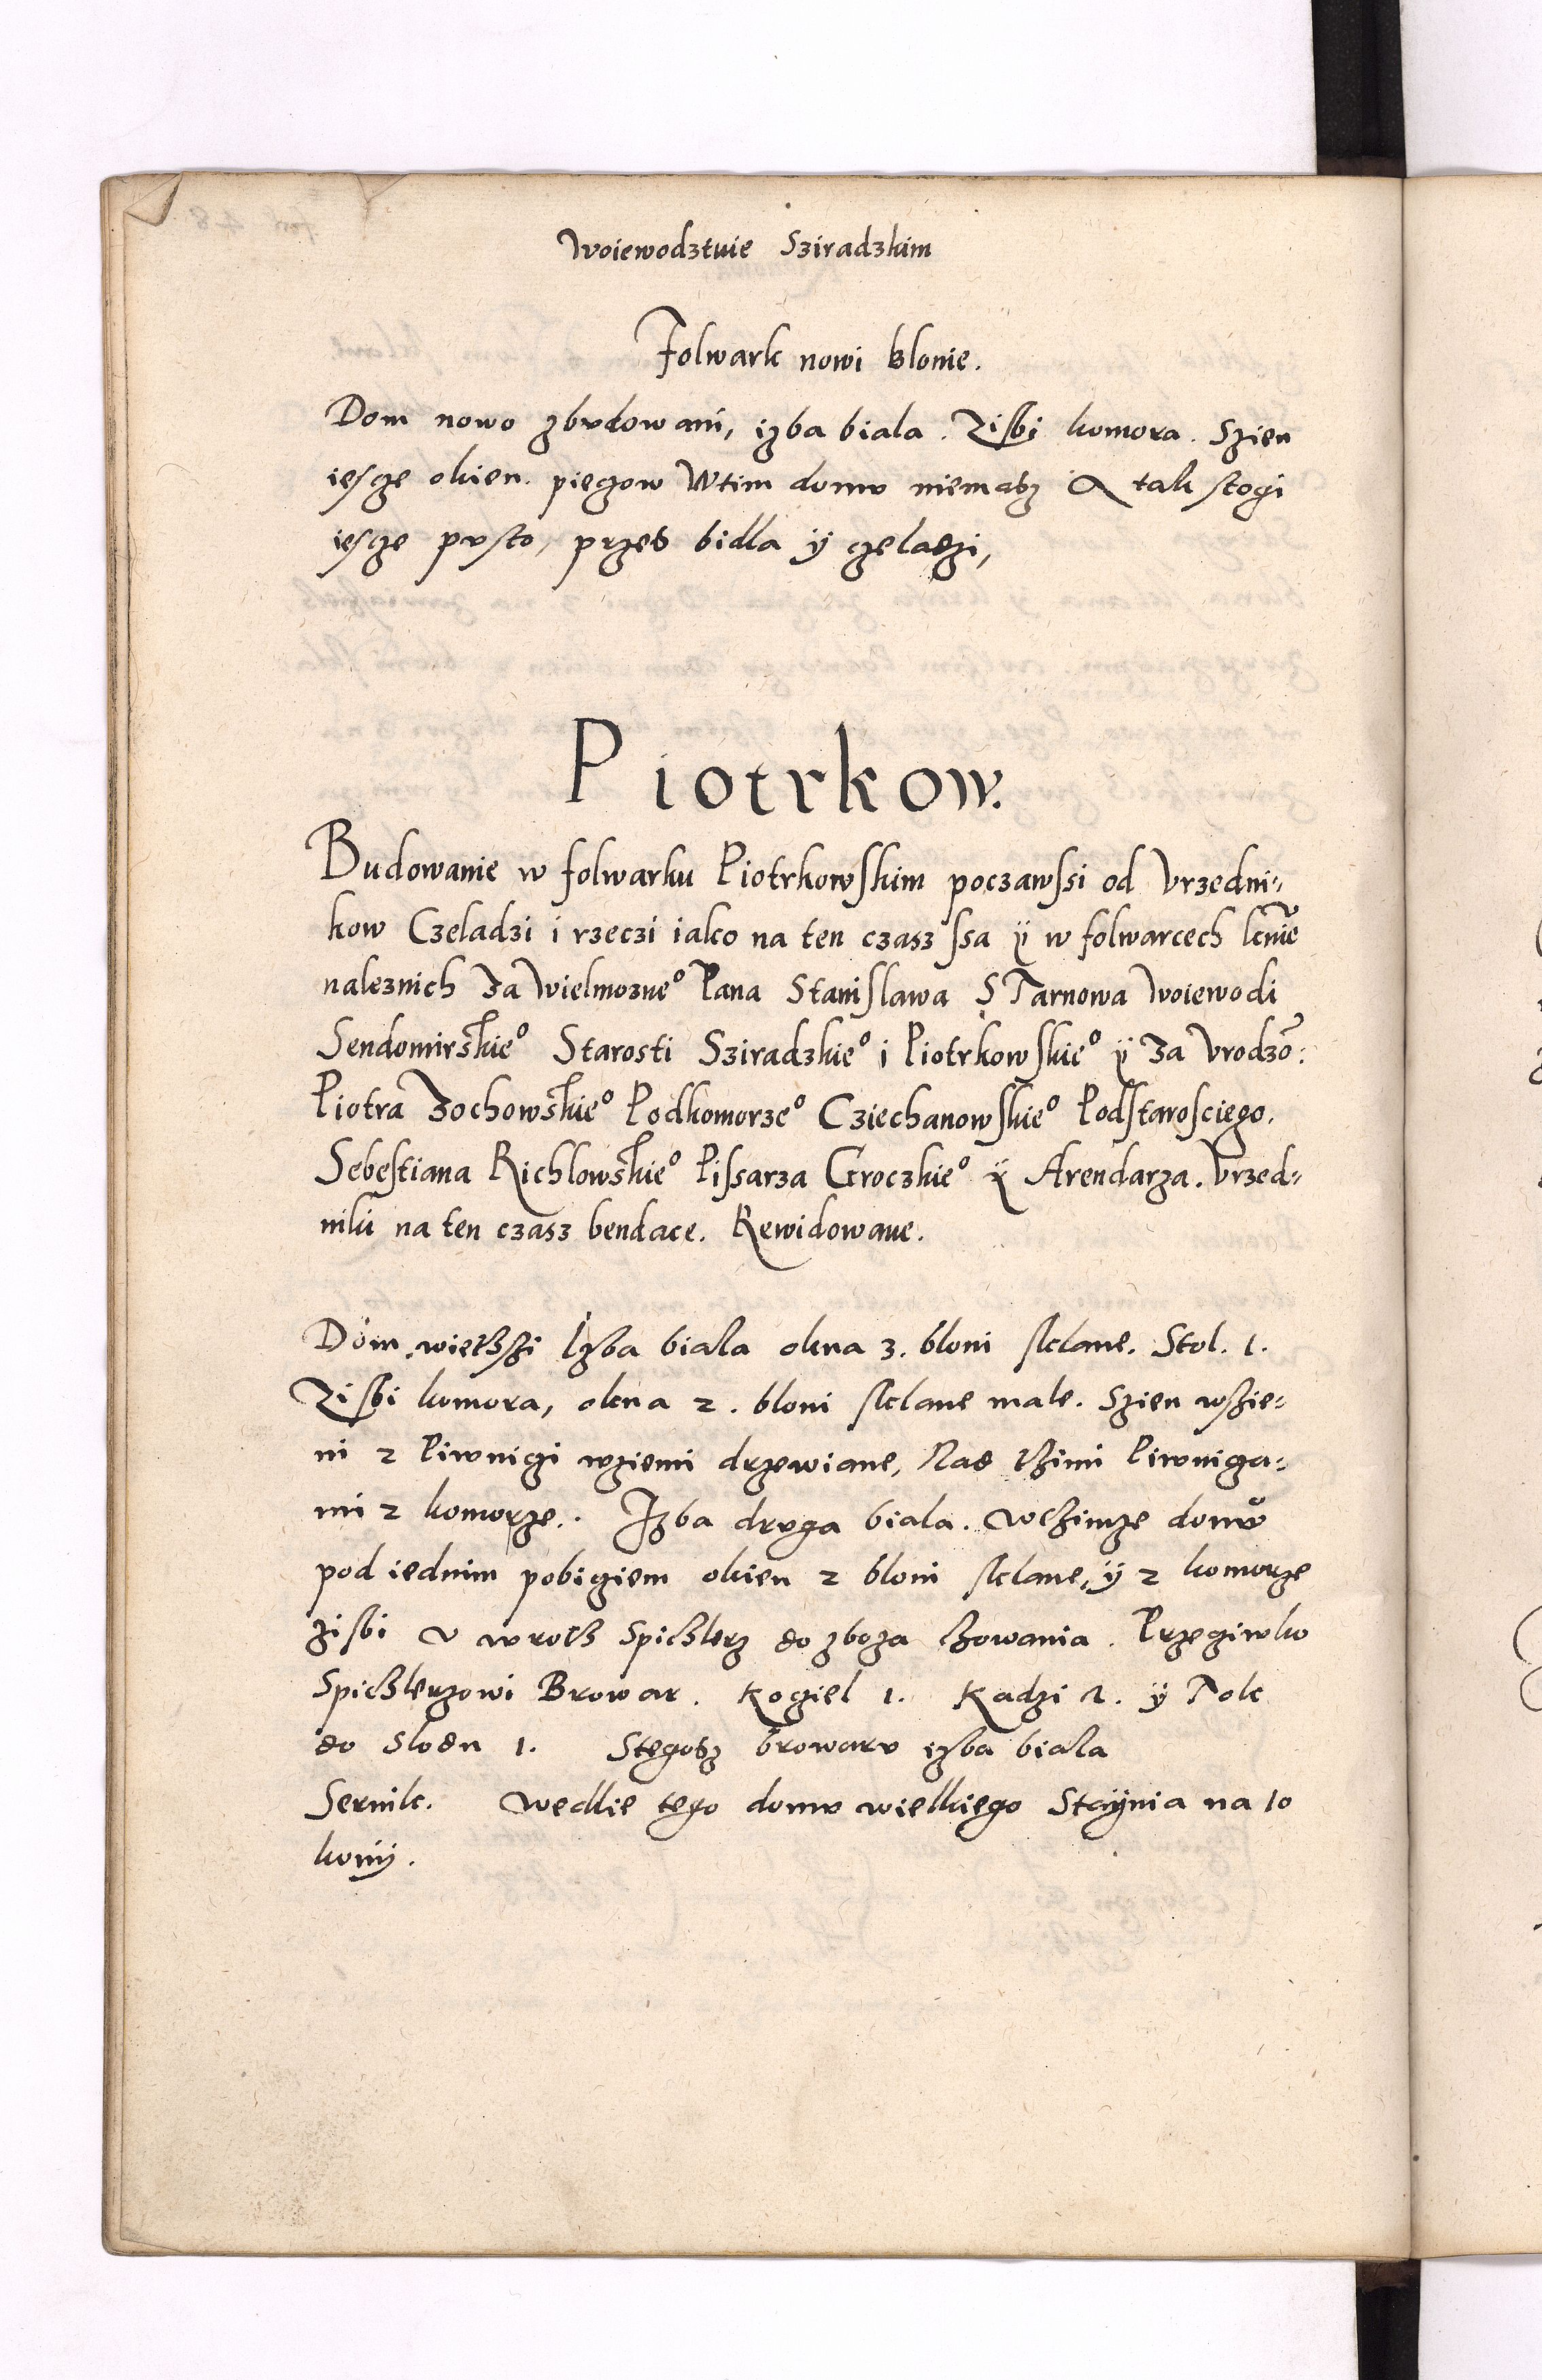 Woiewodztwie Sziradzkim
Folwark nowi blonie.
Dom nowo zbvdowani, izba biala. Zisbi komora. Szien
iescze okien. pieczow Wtim domv niemasz A tak stogi
iescze pvsto, przes bidla ÿ czeladzi,
Piotrkow.
Budowanie w folwarku Piotrkowskim poczawssi od Vrzedni⸗
kow Czeladzi i rzeczi iako na ten czasz ssa ÿ w folwarcech
naleznich Za Wielmozne° Pana Stanislawa S Tarnowa Woiewodi
Sendomirskie° Starosti Sziradzkie° i Piotrkowskie° ÿ Za Vrodzo:
Piotra Zochowskie° Podkomorze° Cziechanowskie° Podstarosciego.
Sebestiana Richlowskie° Pissarza Groczkie° ÿ Arendarza. Vrzed⸗
niku na ten czasz bendace. Rewidowane.
Dom wietszi Izba biala okna 3. bloni sklane. Stol. 1.
Zisbi komora, okna 2. bloni sklane male. Szien wszie⸗
ni 2 Piwniczi wziemi drzewiane, Nad timi Piwnicza⸗
mi 2 komorze. Izba drvga biala. Wtimze domv
pod iednim pobiciem okien 2 bloni sklane, ÿ 2 komorze
zisbi v wroth Spichlerz do zboza chowania. Przeciwko
Spichlerzowi Browar. Koziel 1. Kadzi 2. ÿ Polk
do Slodu 1. Stegosz browarv izba biala
Sernik. Wedlie tego domv wielkiego Staÿnia na 10
koniÿ.